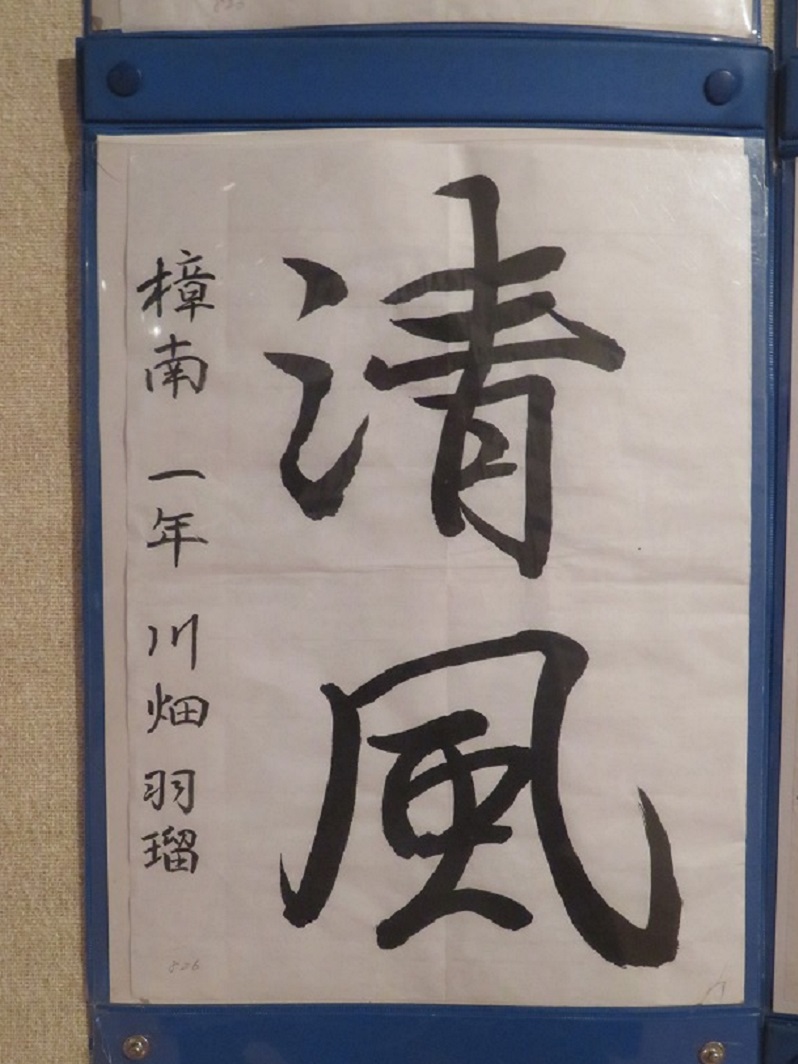 清風
樟南 一年 川畑羽瑠
526